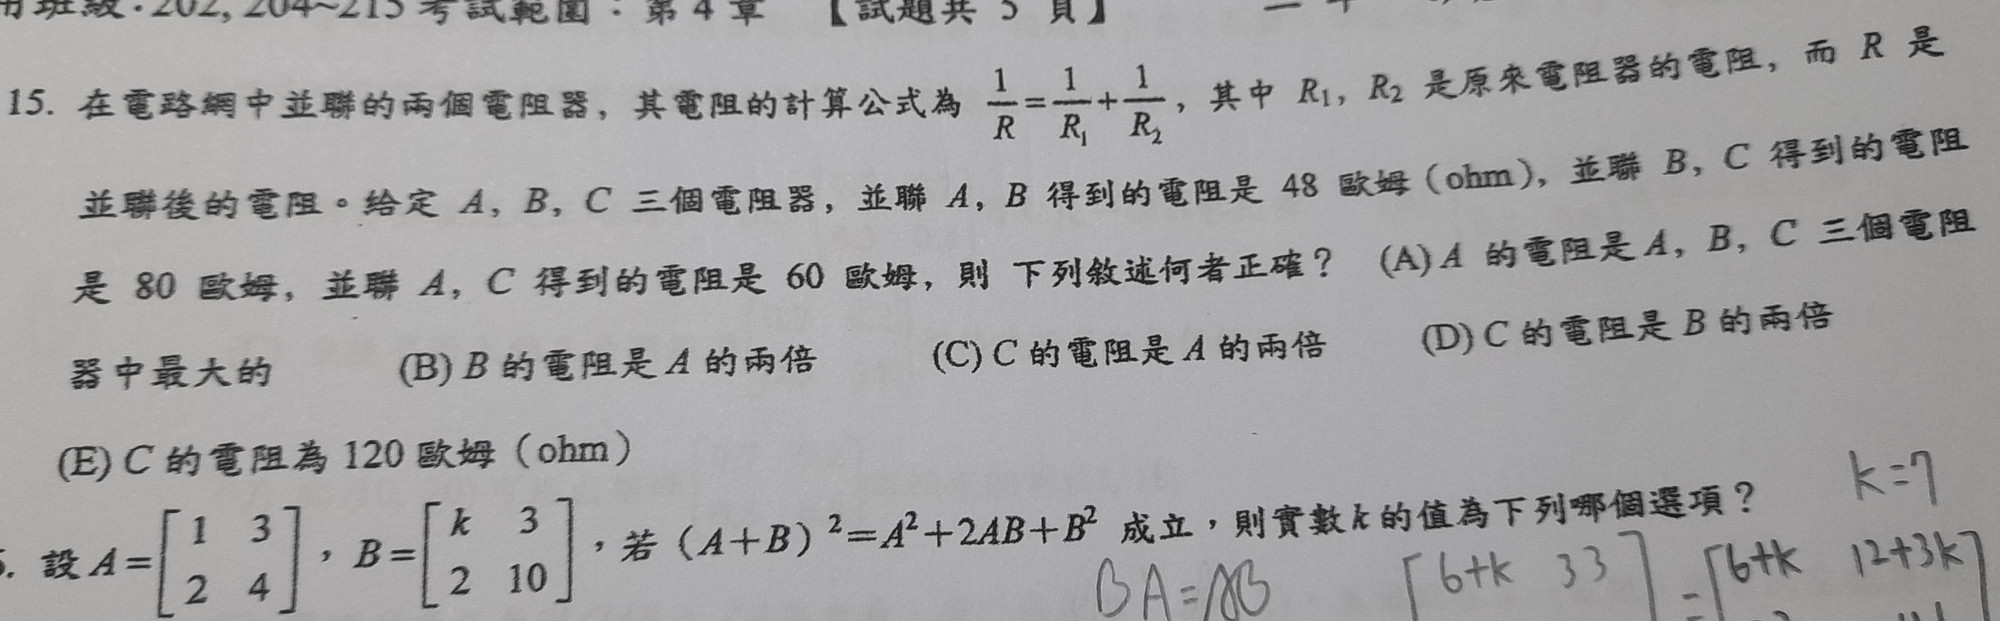 班級:202, 204~215 考試範圍:第 4 章 【試題共 5 頁】
15. 在電路網中並聯的兩個電阻器,其電阻的計算公式為 1/R=1/R₁+1/R₂,其中 R₁, R₂ 是原來電阻器的電阻,而 R 是
並聯後的電阻。給定 A, B, C 三個電阻器,並聯 A, B 得到的電阻是 48 歐姆(ohm),並聯 B, C 得到的電阻
是 80 歐姆,並聯 A, C 得到的電阻是 60 歐姆,則 下列敘述何者正確? (A) A 的電阻是 A, B, C 三個電阻
器中最大的 (B) B 的電阻是 A 的兩倍 (C) C 的電阻是 A 的兩倍 (D) C 的電阻是 B 的兩倍
(E) C 的電阻為 120 歐姆(ohm)
k=7
設 A=[1 3; 2 4],B=[k 3; 2 10],若(A+B)²=A²+2AB+B² 成立,則實數 k 的值為下列哪個選項?
BA=AB [6+k 33] = [6+k 12+3k]